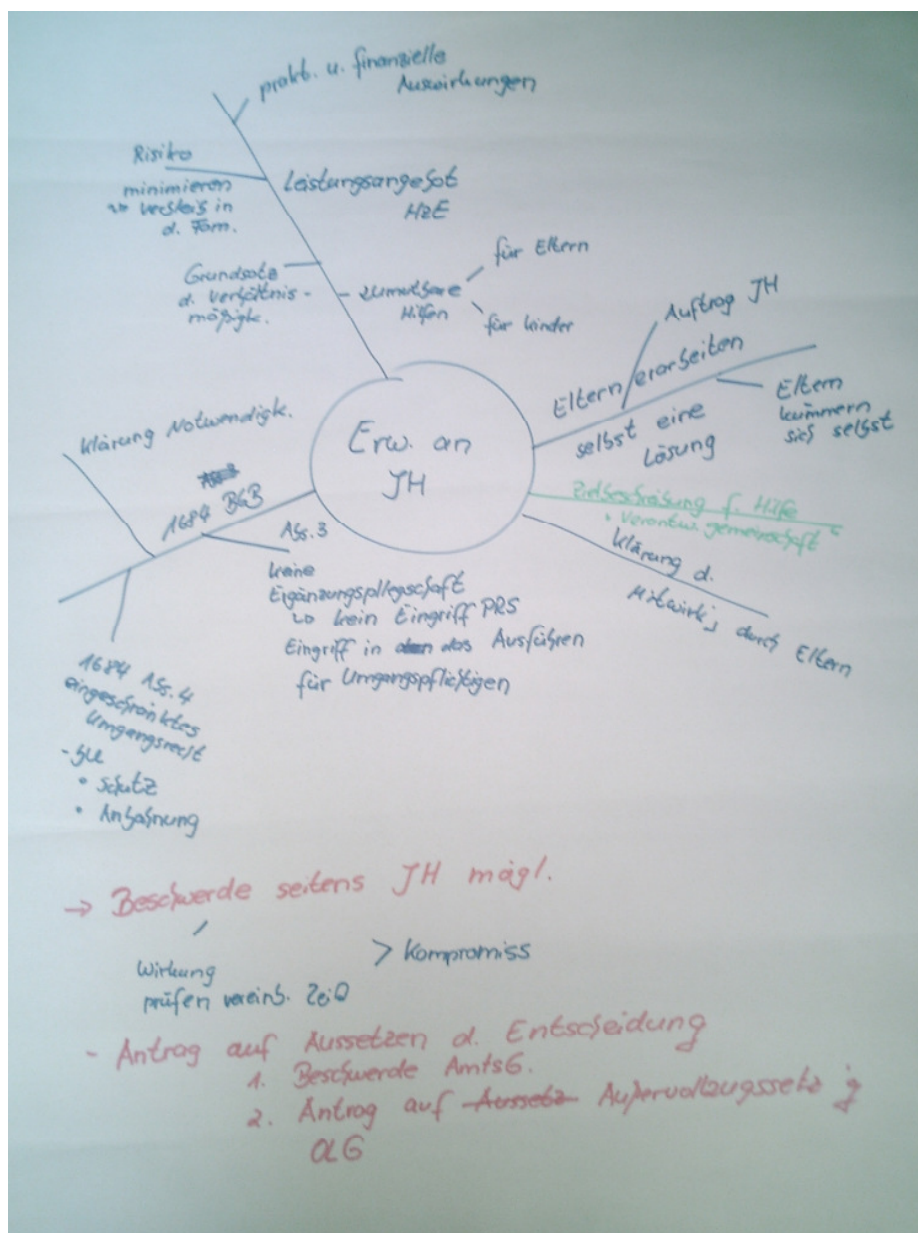 prakt. u. finanzielle
Auswirkungen
Risiko
minimieren
verbleib in
d. Fam.
Leistungsangebot
HzE
Grundsatz
d. Verhältnis-
mäßigk.
- zumutbare
Hilfen
für Eltern
für Kinder
Auftrag JH
Eltern erarbeiten
selbst eine
Lösung
Eltern
kümmern
sich selbst
Erw. an
JH
Zielbeschreibung f. Hilfe
"Verantw. gemeinschaft"
Klärung d.
Mitwirk. durch Eltern
Klärung Notwendigk.
1684 BGB
Abs. 3
keine
Ergänzungspflegschaft
↳ kein Eingriff PRS
Eingriff in das Ausführen
für Umgangspflichtigen
1684 Abs. 4
eingeschränktes
Umgangsrecht
- BU
• Schutz
• Anbahnung
→ Beschwerde seitens JH mögl.
Wirkung
prüfen vereinb.
> Kompromiss
- Antrag auf Aussetzen d. Entscheidung
1. Beschwerde AmtsG.
2. Antrag auf Aussetz Außervollzugssetz g
OLG